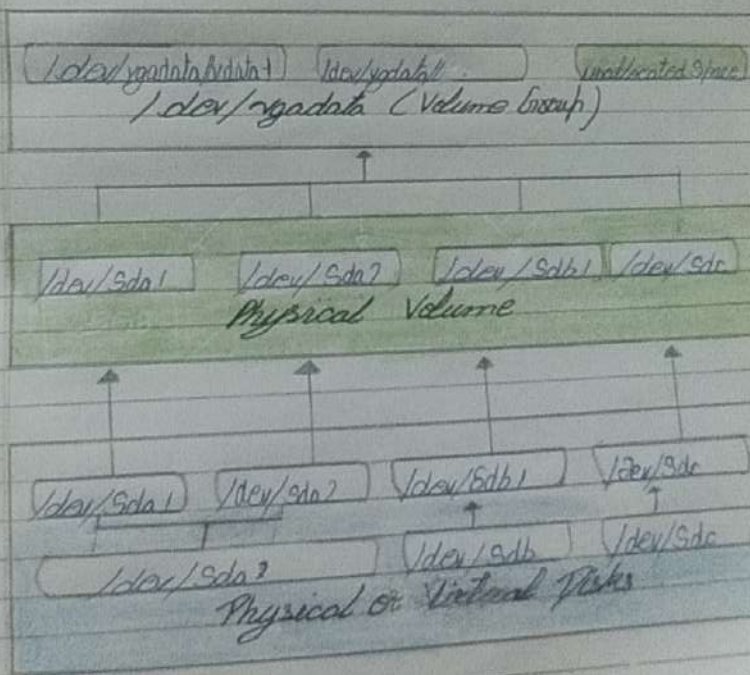 /dev/vgadata/lvdata1 /dev/vgdata/ unallocated Space
/dev/vgadata (Volume Group)
/dev/Sda1 /dev/Sda2 /dev/Sdb1 /dev/Sdc
Physical Volume
/dev/Sda1 /dev/sda2 /dev/Sdb1 /dev/Sdc
/dev/Sda /dev/Sdb /dev/Sdc
Physical or Virtual Disks